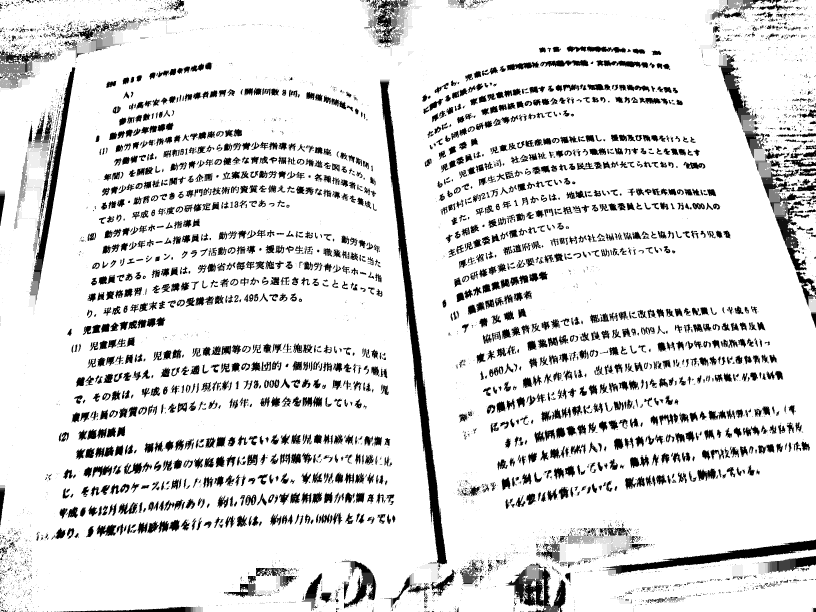 第2部 青少年健全育成事業
人)
④ 中高年安全登山指導者講習会(開催回数3回,開催期間延べ9日,
参加者数116人)
3 勤労青少年指導者
(1) 勤労青少年指導者大学講座の実施
労働省では,昭和51年度から勤労青少年指導者大学講座(教育期間1
年間)を開設し,勤労青少年の健全な育成や福祉の増進を図るため,勤
労青少年の福祉に関する企画・立案及び勤労青少年・各種指導者に対す
る指導・助言のできる専門的技術的資質を備えた優秀な指導者を養成し
ており,平成6年度の研修定員は18名であった。
(2) 勤労青少年ホーム指導員
勤労青少年ホーム指導員は,勤労青少年ホームにおいて,勤労青少年
のレクリエーション,クラブ活動の指導・援助や生活・職業相談に当た
る職員である。指導員は,労働省が毎年実施する「勤労青少年ホーム指
導員資格講習」を受講修了した者の中から選任されることとなってお
り,平成6年度末までの受講者数は2,495人である。
4 児童健全育成指導者
(1) 児童厚生員
児童厚生員は,児童館,児童遊園等の児童厚生施設において,児童に
健全な遊びを与え,遊びを通して児童の集団的・個別的指導を行う職員
で,その数は,平成6年10月現在約1万3,000人である。厚生省は,児
童厚生員の資質の向上を図るため,毎年,研修会を開催している。
(2) 家庭相談員
家庭相談員は,福祉事務所に設置されている家庭児童相談室に配置さ
れ,専門的な立場から児童の家庭養育に関する問題等について相談に応
じ,それぞれのケースに即した指導を行っている。家庭児童相談室は,
平成6年12月現在1,044か所あり,約1,700人の家庭相談員が配置されて
おり,5年度中に相談指導を行った件数は,約84万5,000件となってい
る。中でも,児童に係る環境福祉の問題や知能・言語の問題等
に関する相談が多い。
厚生省は,家庭児童相談に関する専門的な知識及び技術の向上を図る
ために,毎年,家庭相談員の研修会を行っており,地方公共団体等にお
いても同様の研修会等が行われている。
(3) 児童委員
児童委員は,児童及び妊産婦の福祉に関し,援助及び指導を行うとと
もに,児童福祉司,社会福祉主事の行う職務に協力することを職務とす
るもので,厚生大臣から委嘱される民生委員が充てられており,全国の
市町村に約21万人が置かれている。
また,平成6年1月からは,地域において,子供や妊産婦の福祉に関
する相談・援助活動を専門に担当する児童委員として約1万4,000人の
主任児童委員が置かれている。
厚生省は,都道府県,市町村が社会福祉協議会と協力して行う児童委
員の研修事業に必要な経費について助成を行っている。
5 農林水産業関係指導者
(1) 農業関係指導者
ア 普及職員
協同農業普及事業では,都道府県に改良普及員を配置し(平成6年
度末現在,農業関係の改良普及員9,009人,生活関係の改良普及員
1,660人),普及指導活動の一環として,農村青少年の育成指導を行っ
ている。農林水産省は,改良普及員の設置及び活動並びに改良普及員
の農村青少年に対する普及指導能力を高めるための研修に必要な経費
について,都道府県に対し助成している。
また,協同農業普及事業では,専門技術員を都道府県に設置し(平
成6年度末現在667人),農村青少年の指導に関する事項等を改良普及
員に対して指導している。農林水産省は,専門技術員の設置及び活動
に必要な経費について,都道府県に対し助成している。